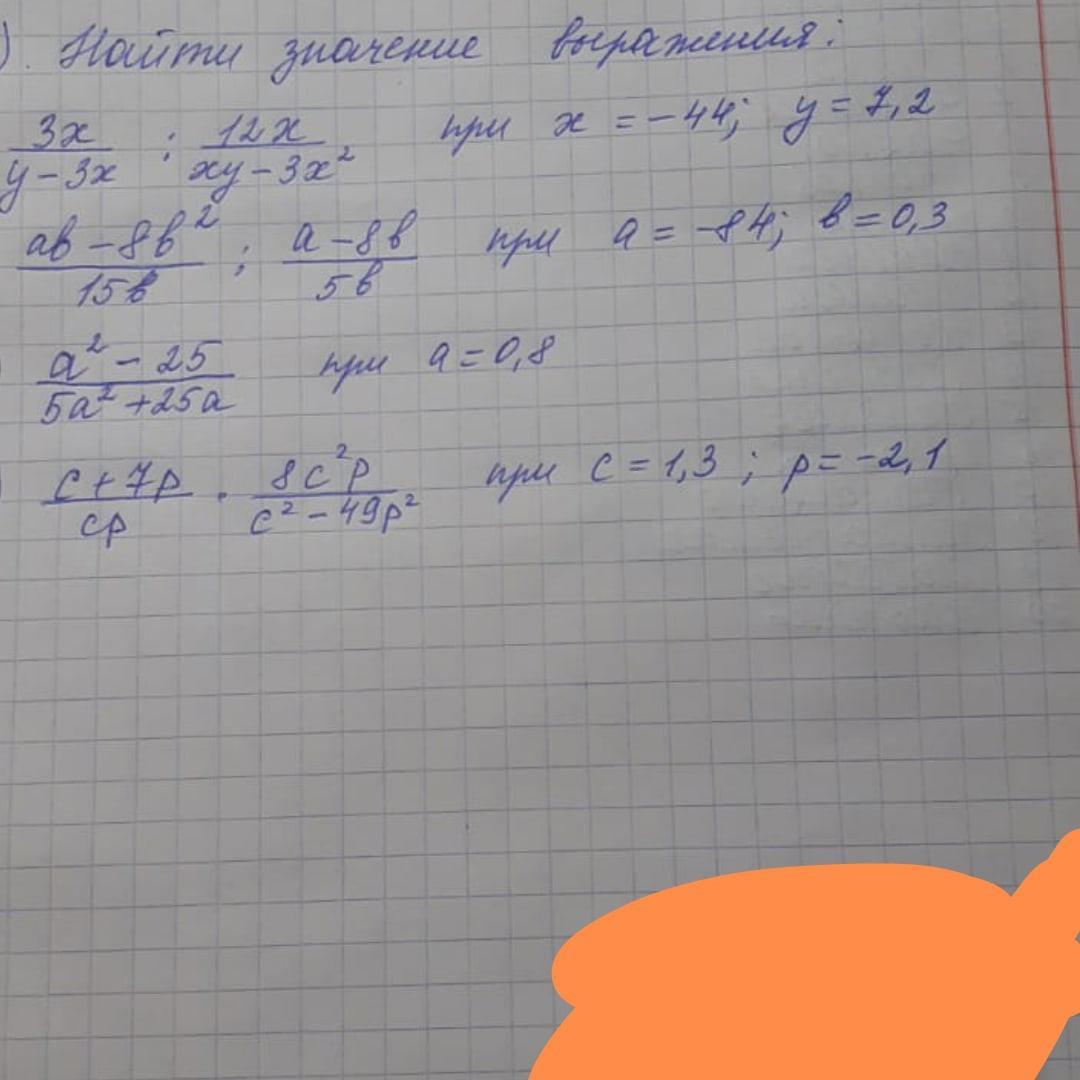 ). Найти значение выражения:
3x/(y-3x) : 12x/(xy-3x²) при x = -44; y = 7,2
(ab-8b²)/15b : (a-8b)/5b при a = -84; b = 0,3
) (a²-25)/(5a²+25a) при a = 0,8
) (c+7p)/cp · 8c²p/(c²-49p²) при c = 1,3 ; p = -2,1